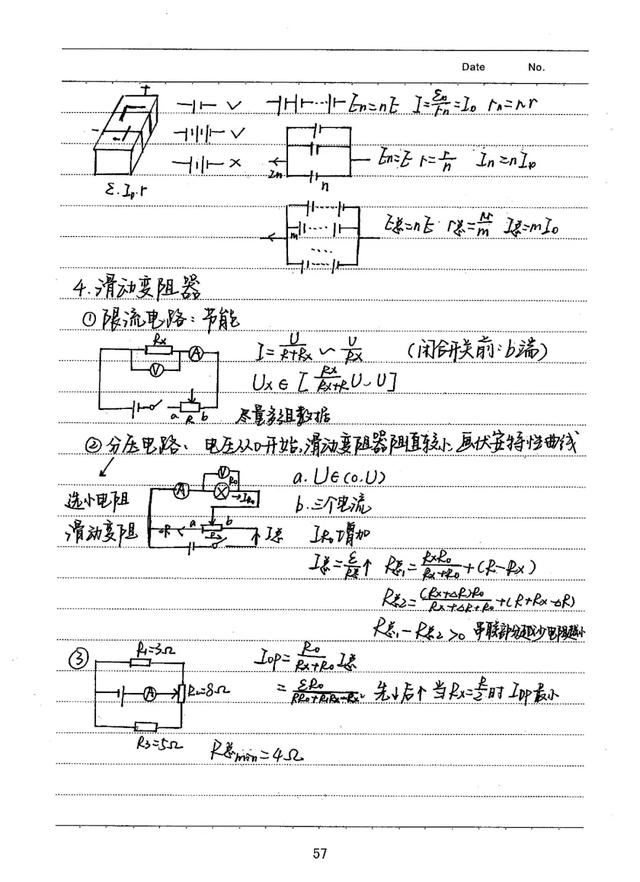 Date No.
+
- ✓ En=nE I=ε₀/rn=I₀ rn=nr
✓
× In n En=E r=r/n In=nI₀
ε.I₀.r
m E总=nE r总=nr/m I总=mI₀
4.滑动变阻器
①限流电路:节能
Rx A V a R b
I=U/(R+Rx)~U/Rx (闭合开关前:b端)
Ux∈[Rx/(Rx+R)U~U]
尽量多组数据
②分压电路: 电压从0开始,滑动变阻器阻值较小 画伏安特性曲线
选小电阻
滑动变阻
V R₀ A →IR₀ a b R Rx ↑I总
a.U∈(0.U)
b.三个电流
IR₀↑增加
I总=ε/R总↑ R总₁=RxR₀/(Rx+R₀)+(R-Rx)
R总₂=(Rx+△R)R₀/(Rx+△R+R₀)+(R+Rx-△R)
R总₁-R总₂>0 串联部分越少电阻越小
③
R₁=3Ω A R₂=8Ω R₃=5Ω
IOP=R₀/(Rx+R₀)I总
=εR₀/(RR₀+RRx-Rx²) 先↓后↑ 当Rx=R/2时 IOP最小
R总min=4Ω
57